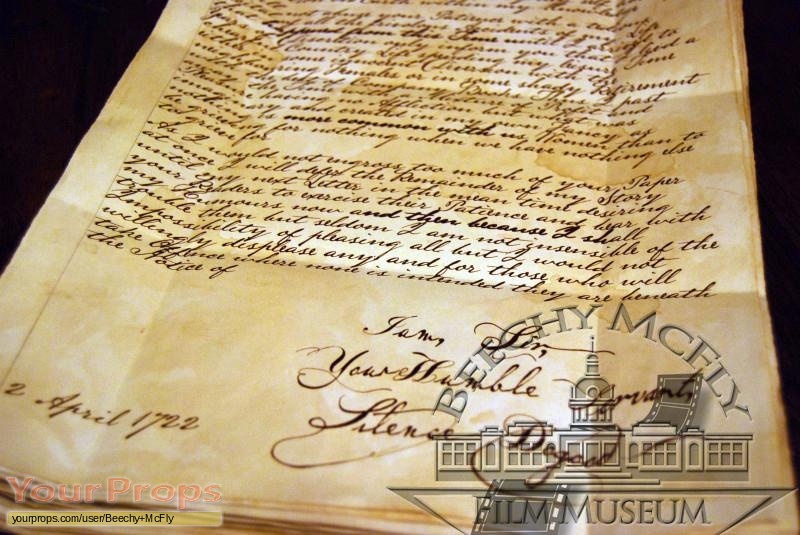 your Patience with a
upon from this
only inform you
Country and
Time
Conversation with
Females or in
Retirement
Books Thus I past
no Affliction but what was
created in my own Fancy as
more common with us Women than to
be grieving for nothing when we have nothing else
As I would not engross too much of your Paper
at once I will defer the Remainder of my Story
until my next Letter in the mean time desiring
your Readers to exercise their Patience and bear with
my Humours now and then because I shall
trouble them but seldom I am not insensible of the
Impossibility of pleasing all but I would not
willingly displease any and for those who will
take Offence where none is intended they are beneath
the Notice of
I am, Sir,
Your Humble Servant,
Silence Dogood
2 April 1722
BEECHY MCFLY
FILM MUSEUM
YourProps
yourprops.com/user/Beechy+McFly